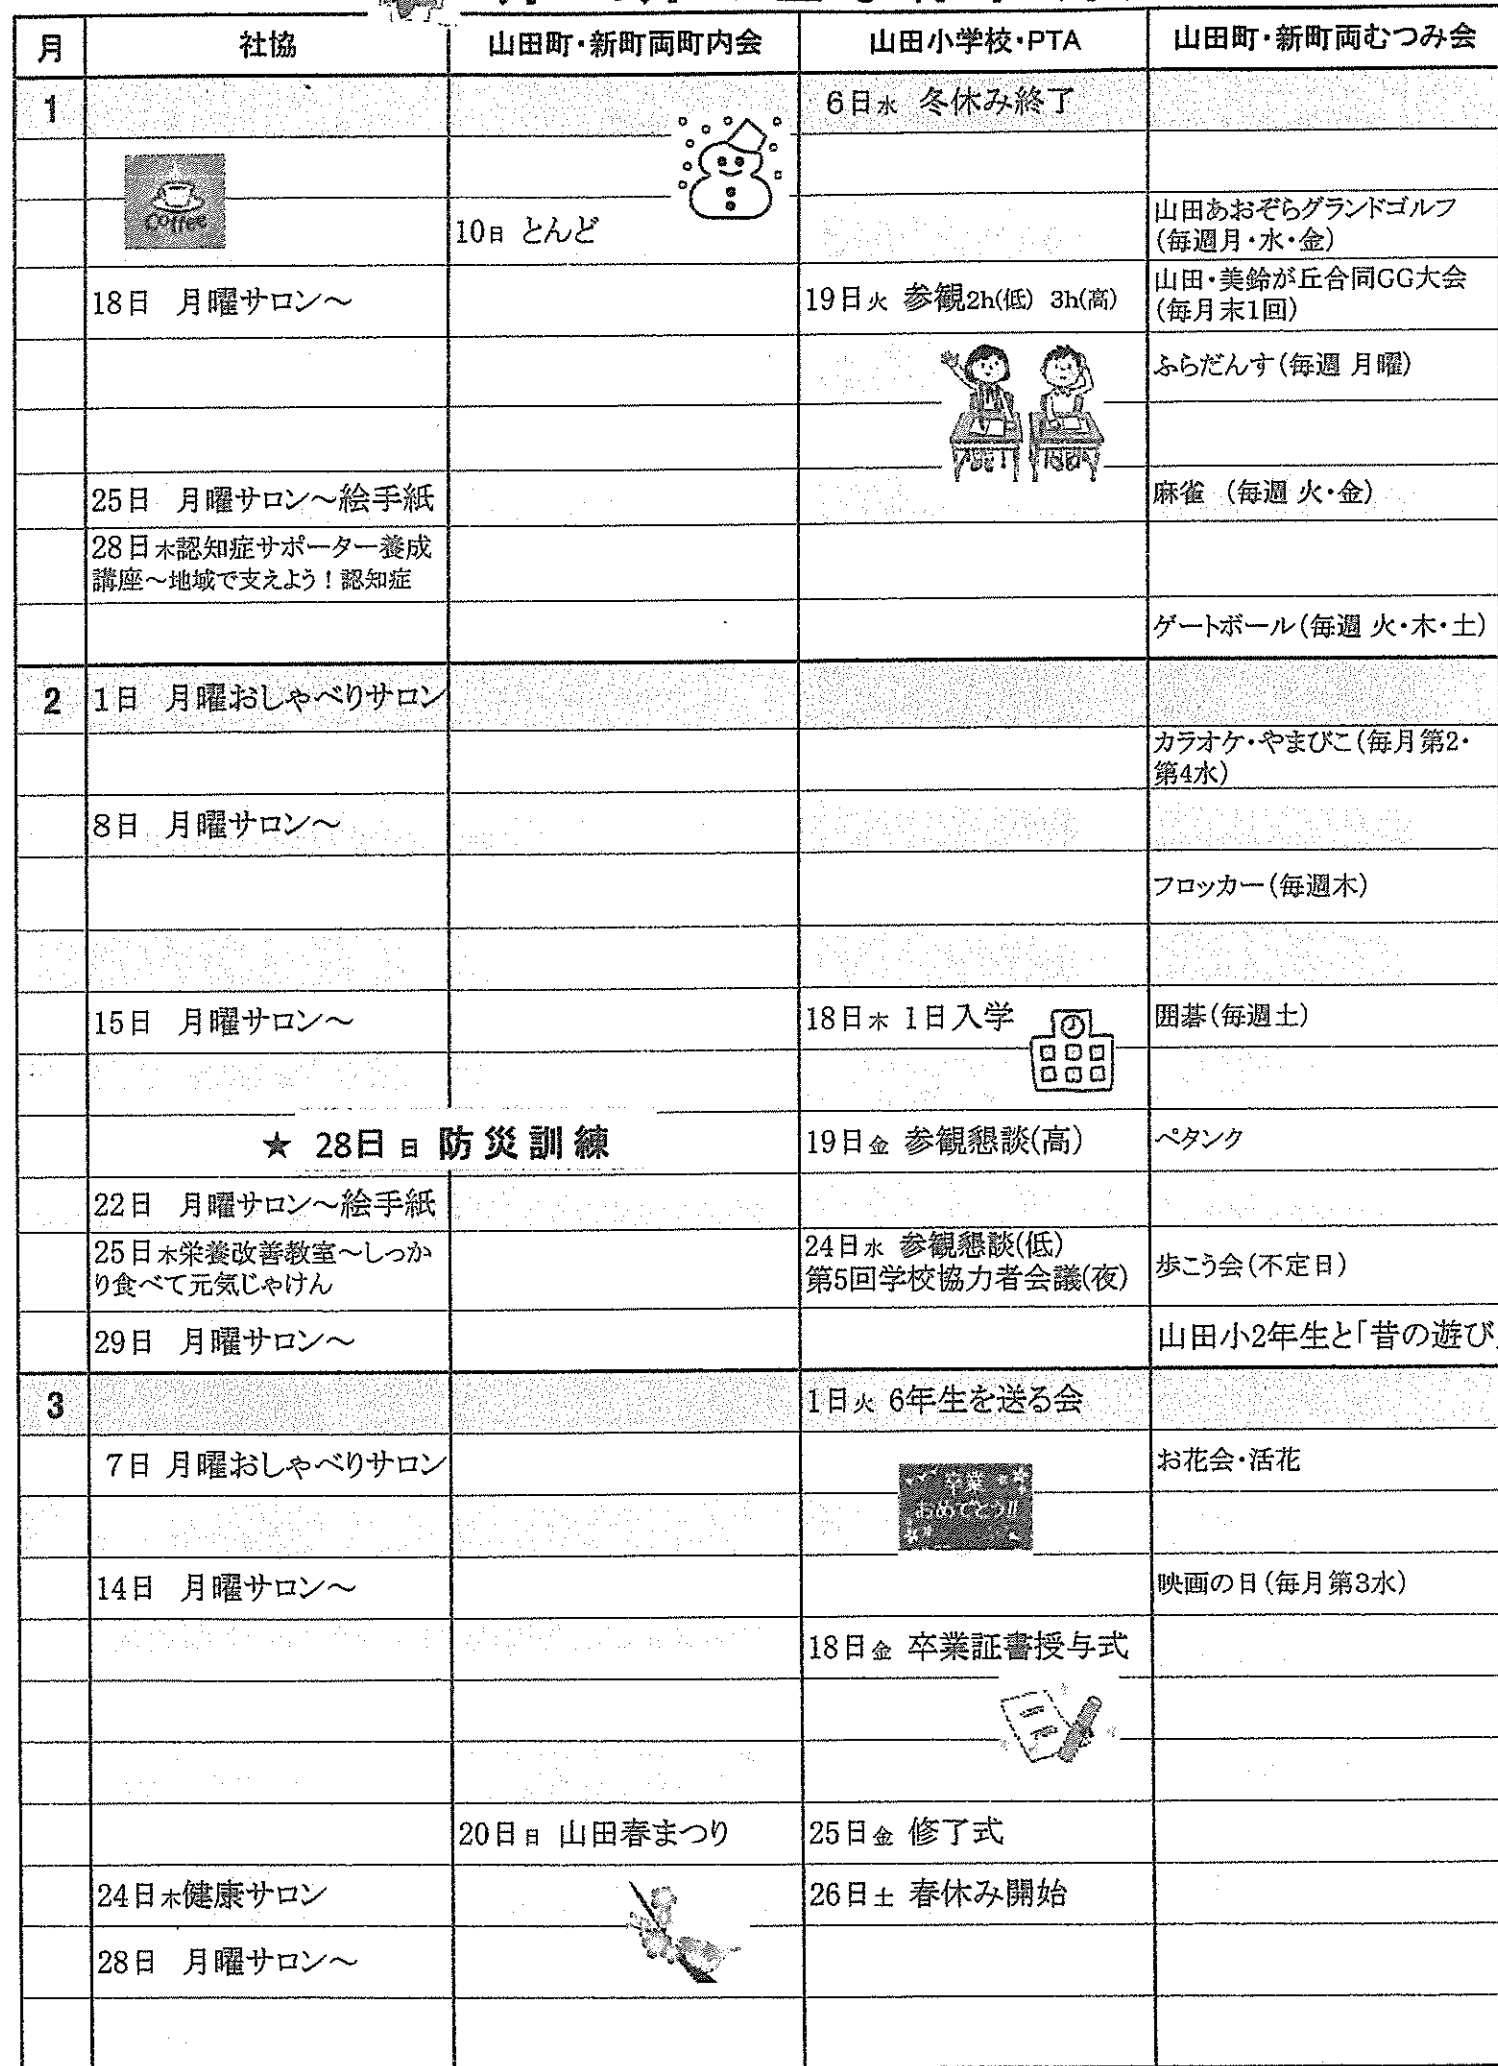 月 社協 山田町・新町両町内会 山田小学校・PTA 山田町・新町両むつみ会
1 6日水 冬休み終了
Coffee
10日 とんど 山田あおぞらグランドゴルフ
(毎週月・水・金)
18日 月曜サロン～ 19日火 参観2h(低) 3h(高) 山田・美鈴が丘合同GG大会
(毎月末1回)
ふらだんす(毎週 月曜)
25日 月曜サロン～絵手紙 麻雀 (毎週 火・金)
28日木認知症サポーター養成
講座～地域で支えよう！認知症
ゲートボール(毎週 火・木・土)
2 1日 月曜おしゃべりサロン
カラオケ・やまびこ(毎月第2・
第4水)
8日 月曜サロン～
フロッカー(毎週木)
15日 月曜サロン～ 18日木 1日入学 囲碁(毎週土)
★ 28日日 防災訓練 19日金 参観懇談(高) ペタンク
22日 月曜サロン～絵手紙
25日木栄養改善教室～しっか
り食べて元気じゃけん
24日水 参観懇談(低)
第5回学校協力者会議(夜)
歩こう会(不定日)
29日 月曜サロン～ 山田小2年生と「昔の遊び」
3 1日火 6年生を送る会
7日 月曜おしゃべりサロン お花会・活花
卒業
おめでとう!!
14日 月曜サロン～ 映画の日(毎月第3水)
18日金 卒業証書授与式
20日日 山田春まつり 25日金 修了式
24日木健康サロン 26日土 春休み開始
28日 月曜サロン～